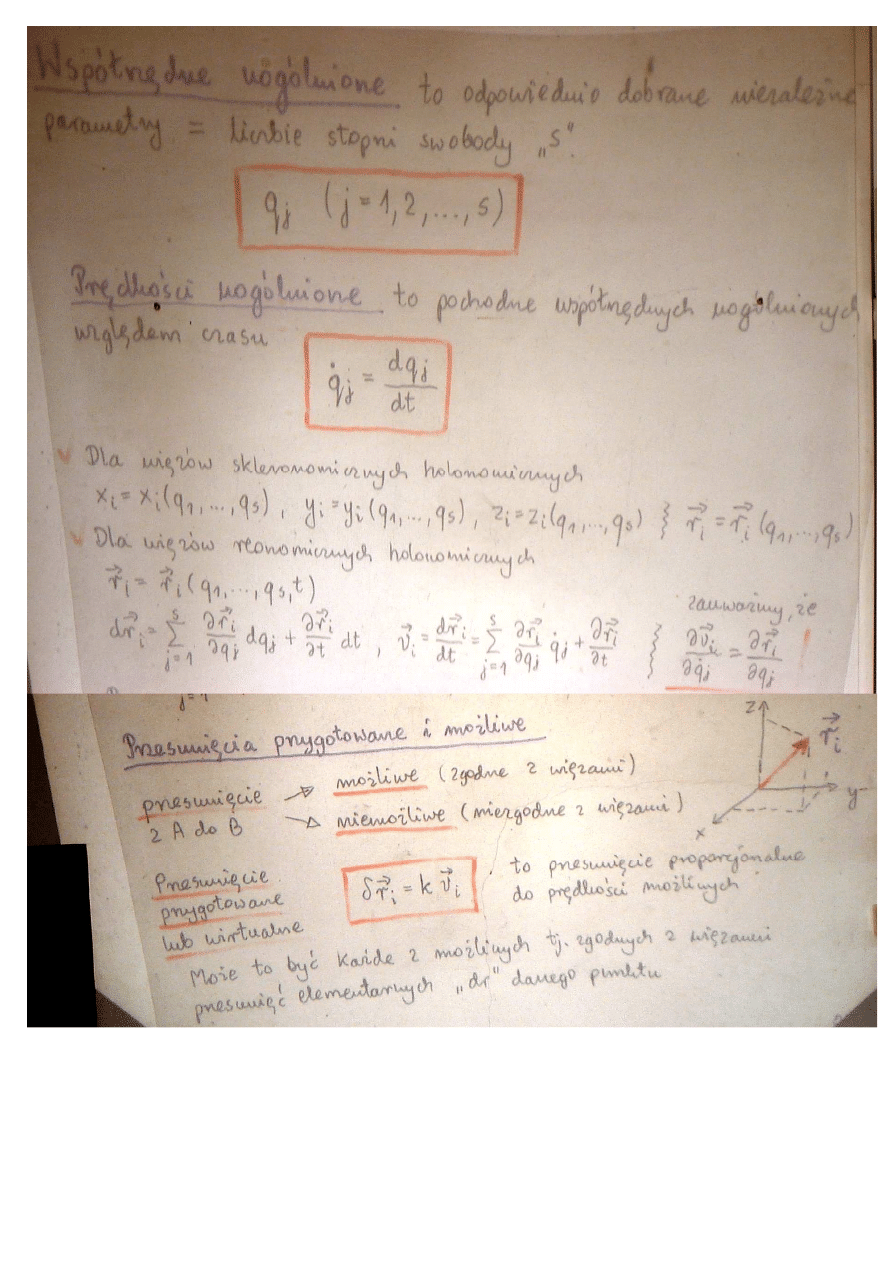 Współrzędne uogólnione to odpowiednio dobrane niezależne
parametry = liczbie stopni swobody „s".
qj (j = 1, 2, ..., s)
Prędkości uogólnione to pochodne współrzędnych uogólnionych
względem czasu
q̇j = dqj/dt
Dla więzów skleronomicznych holonomicznych
xi = xi(q1, ..., qs), yi = yi(q1, ..., qs), zi = zi(q1, ..., qs) } r⃗i = r⃗i(q1, ..., qs)
Dla więzów reonomicznych holonomicznych
r⃗i = r⃗i(q1, ..., qs, t)
zauważmy, że
dr⃗i = Σ_{j=1}^{s} ∂r⃗i/∂qj dqj + ∂r⃗i/∂t dt, v⃗i = dr⃗i/dt = Σ_{j=1}^{s} ∂r⃗i/∂qj q̇j + ∂r⃗i/∂t } ∂v⃗i/∂q̇j = ∂r⃗i/∂qj
j=1
Przesunięcia przygotowane i możliwe
przesunięcie
z A do B
możliwe (zgodne z więzami)
niemożliwe (niezgodne z więzami)
z
r⃗i
y
x
Przesunięcie
przygotowane
lub wirtualne
δr⃗i = k v⃗i
to przesunięcie proporcjonalne
do prędkości możliwych
Może to być każde z możliwych tj. zgodnych z więzami
przesunięć elementarnych „dr" danego punktu